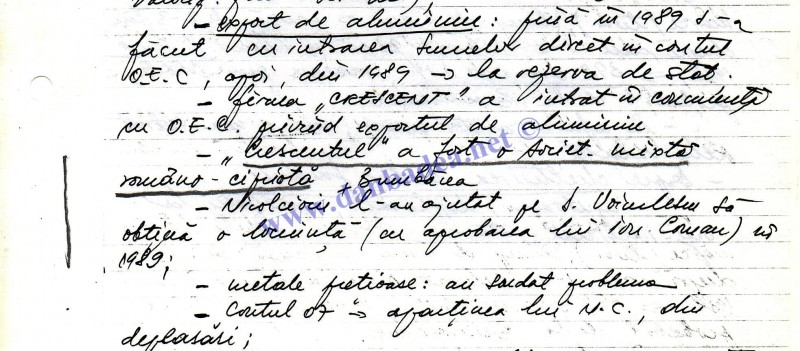 - export de aluminiu: până în 1989 s-a
făcut cu intrarea sumelor direct în contul
O.E.C, apoi, din 1989 → la rezerva de stat.
- firma „CRESCENT” a intrat în concurență
cu O.E.C. privind exportul de aluminiu
- „Crescentul” a fost o societ. mixtă
româno-cipriotă +
- Nicolcioiu l-au ajutat pe D. Voiculescu să
obțină o locuință (cu aprobarea lui Ion Coman) în
1989;
- metale prețioase: au sondat problema
- Contul 07 → aparținea lui N.C., din
deplasări;
www.danbadea.net ©